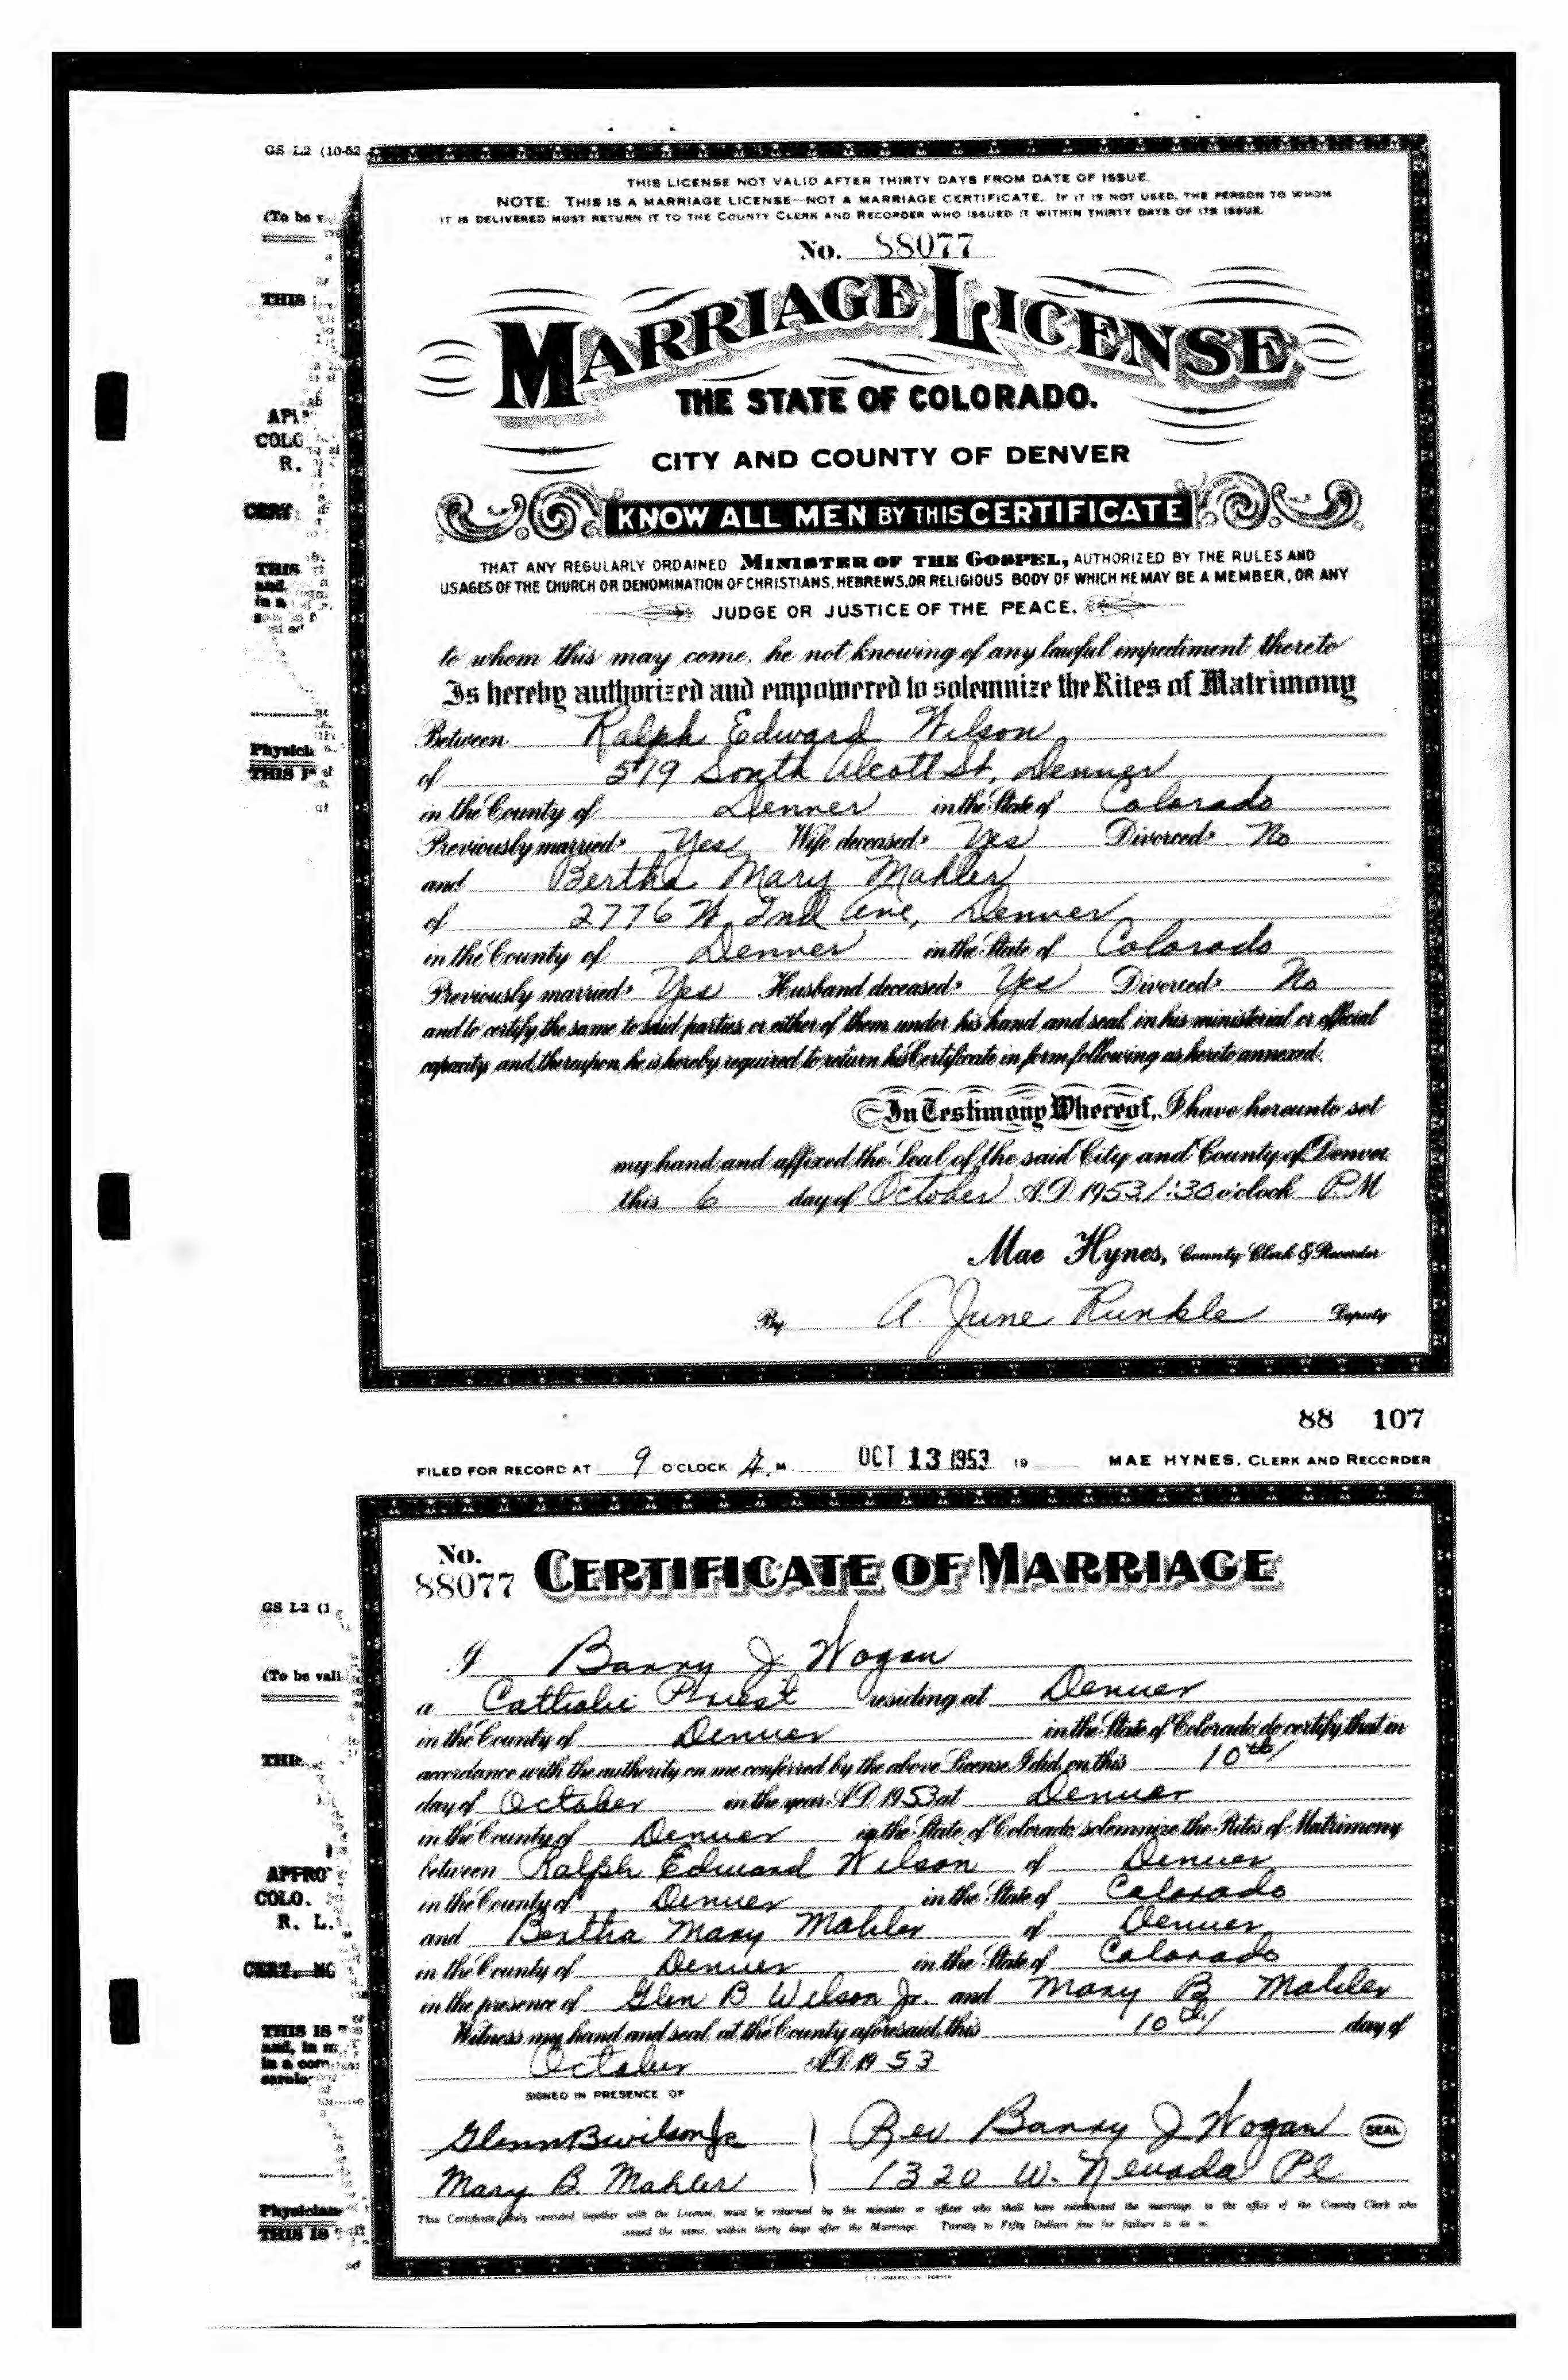 GS L2 (10-52
THIS LICENSE NOT VALID AFTER THIRTY DAYS FROM DATE OF ISSUE.
NOTE: THIS IS A MARRIAGE LICENSE—NOT A MARRIAGE CERTIFICATE. IF IT IS NOT USED, THE PERSON TO WHOM
IT IS DELIVERED MUST RETURN IT TO THE COUNTY CLERK AND RECORDER WHO ISSUED IT WITHIN THIRTY DAYS OF ITS ISSUE.
(To be
No. 88077
THIS
MARRIAGE LICENSE
THE STATE OF COLORADO.
COLO
CITY AND COUNTY OF DENVER
R.
CERT.
KNOW ALL MEN BY THIS CERTIFICATE
THAT ANY REGULARLY ORDAINED MINISTER OF THE GOSPEL, AUTHORIZED BY THE RULES AND
USAGES OF THE CHURCH OR DENOMINATION OF CHRISTIANS, HEBREWS, OR RELIGIOUS BODY OF WHICH HE MAY BE A MEMBER, OR ANY
JUDGE OR JUSTICE OF THE PEACE.
THIS
and,
in a
to whom this may come, he not knowing of any lawful impediment thereto
Is hereby authorized and empowered to solemnize the Rites of Matrimony
Between Ralph Edward Wilson
of 579 South Alcott St, Denver
in the County of Denver in the State of Colorado
Previously married? Yes Wife deceased? Yes Divorced? No
and Bertha Mary Mahler
of 2776 W. 2nd Ave, Denver
in the County of Denver in the State of Colorado
Previously married? Yes Husband deceased? Yes Divorced? No
and to certify the same to said parties, or either of them, under his hand and seal, in his ministerial or official
capacity and, thereupon, he is hereby required to return his Certificate in form following as hereto annexed.
In Testimony Whereof, I have hereunto set
my hand and affixed the Seal of the said City and County of Denver,
this 6 day of October A.D. 1953, 1:30 o'clock P.M
Mae Hynes, County Clerk & Recorder
By A. June Runkle Deputy
88 107
FILED FOR RECORD AT 9 O'CLOCK A. M. OCT 13 1953 19 MAE HYNES, CLERK AND RECORDER
No.
88077 CERTIFICATE OF MARRIAGE
GS L-2 (1
I Barry J Wogan
(To be vali
a Catholic Priest residing at Denver
in the County of Denver in the State of Colorado, do certify, that in
accordance with the authority on me conferred by the above License, I did, on this 10th
day of October in the year A.D. 1953 at Denver
in the County of Denver in the State of Colorado, solemnize the Rites of Matrimony
between Ralph Edward Wilson of Denver
in the County of Denver in the State of Colorado
and Bertha Mary Mahler of Denver
in the County of Denver in the State of Colorado
in the presence of Glen B Wilson Jr. and Mary B Mahler
Witness my hand and seal, at the County aforesaid, this 10th day of
October A.D. 1953
APPRO
COLO.
R. L.
CERT. NO
THIS IS
and, in m
in a com
serolo
SIGNED IN PRESENCE OF
Glenn B Wilson Jr Rev. Barry J Wogan SEAL
Mary B. Mahler 1320 W. Nevada Pl
This Certificate, duly executed together with the License, must be returned by the minister or officer who shall have solemnized the marriage, to the office of the County Clerk who
issued the same, within thirty days after the Marriage. Twenty to Fifty Dollars fine for failure to do so.
Physician
THIS IS